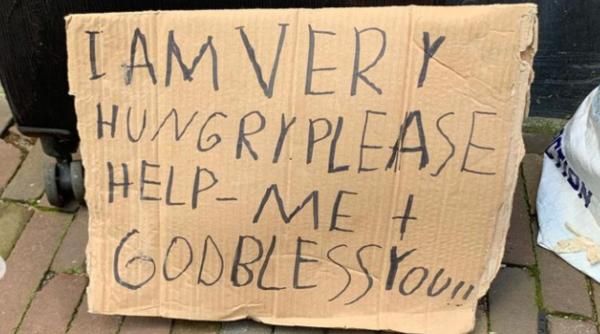 I AM VERY
HUNGRY PLEASE
HELP- ME +
GOD BLESS YOU!!